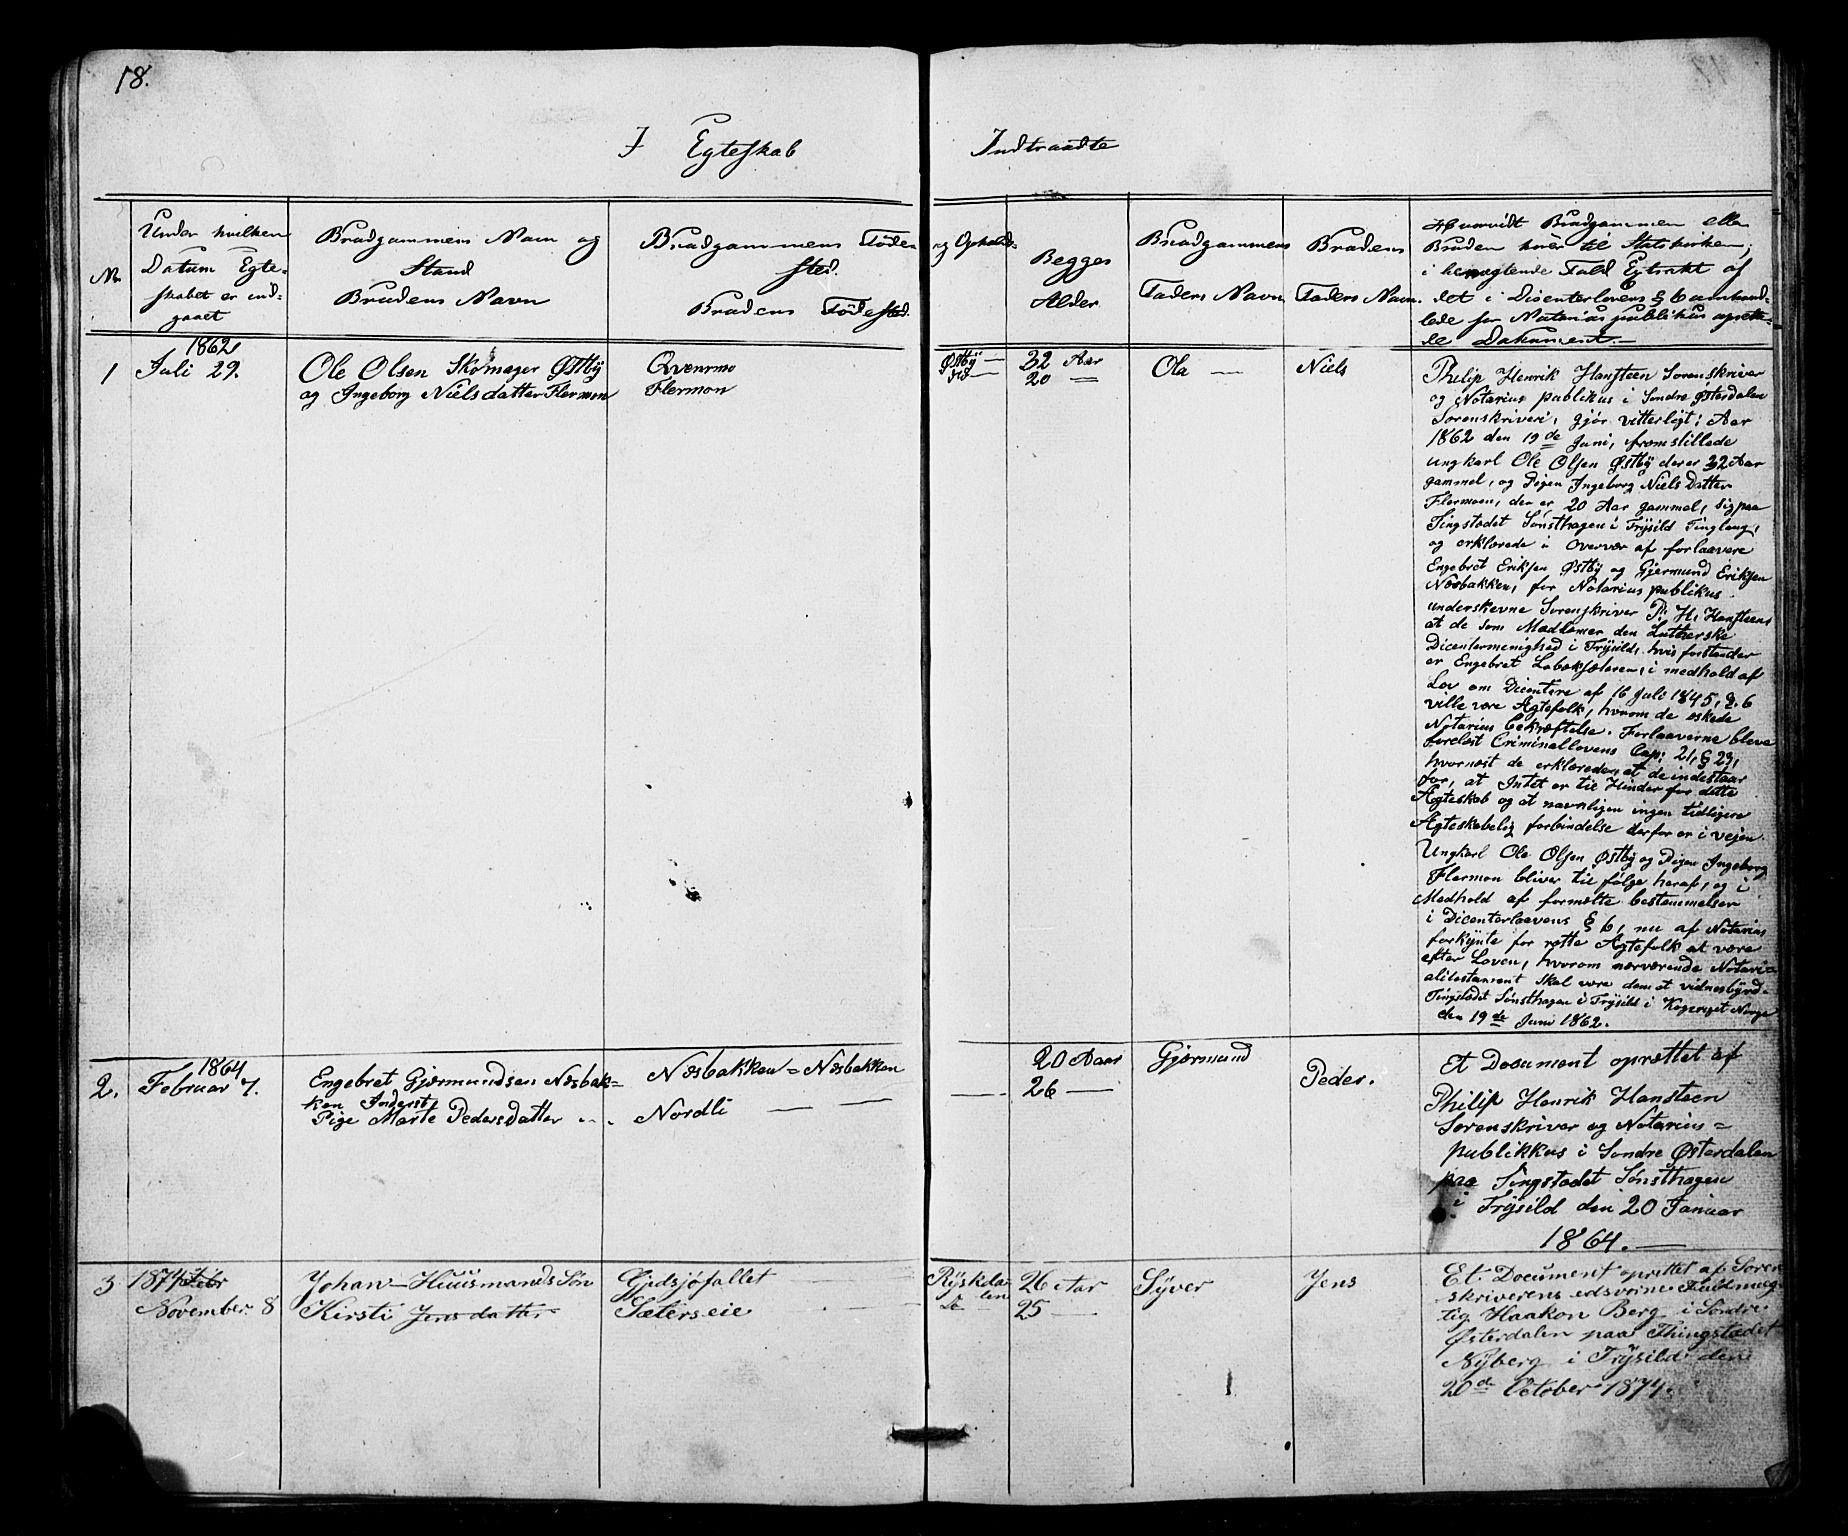 18.
I Egteskab Indtraadte
No
Under hvilken
Datum Egte-
skabet er ind-
gaaet
Brudgammens Navn og
Stand
Brudens Navn
Brudgammens Föde
sted.
Brudens Födested.
og Ophold
Begges
Alder
Brudgammens
Faders Navn
Brudens
Faders Navn.
Hvorvidt Brudgammen eller
Bruden hörer til Statskirken;
i benægtende Fald Egtrakt af
det i Disenterlovens § 6 omhand-
lede for Notarius publikus oprette-
de Dokument.
1
1862
Juli 29.
Ole Olsen Skomager Østby
og Ingeborg Nielsdatter Flermon
Qvenmo
Flermon
Østbÿ —
do —
32 Aar
20 —
Ola —
Niels
Philip Henrik Hansteen Sorenskriver
og Notarius publikus i Søndre Østerdalen
Sorenskriveri, gjør vitterligt; Aar
1862 den 19de Juni, fremstillede
ungkarl Ole Olsen Østbÿ der er 32 Aar
gammel, og Pigen Ingeborg Niels Datter
Flermoen, der er 20 Aar gammel, sig paa
Tingstedet Sønsthagen i Trÿsild Tinglaug,
og erklærede i Overvær af forlaavere
Engebret Eriksen Østbÿ og Gjermund Eriksen
Næsbakken, for Notarius publikus
underskevne Sorenskriver P. H. Hansteens
at de som Medlemer den Lutherske
Dicentermenighed i Trÿsild, hvis forstander
er Engebret Lobeksæteren, i medhold af
Lov om Dicentere af 16 Juli 1845, §. 6
ville være Ægtefolk, hvorom de eskede
Notarius bekræftelse. Forlaaverne bleve
forelæst Criminallovens Cap. 21, § 29,
hvornæst de erklærede, at de indestaar
for, at Intet er til Hinder for dette
Ægteskab og at navnligen ingen tidligere
Ægteskabelig forbindelse derfor er i vejen.
Ungkarl Ole Olsen Østbÿ og Pigen Ingeborg
Flermon bliver til følge heraf, og i
Medhold af formelte bestemmelser
i Dicenterlaavens § 6, nu af Notarius
forkÿnte for rette Ægtefolk at være
efter Loven, hvorom nærværende Notari-
alitestament skal være dem et vidnesbÿrd.
Tingstedet Sönsthagen i Trÿsild i Kogeriget Norge
den 19de Juni 1862.
2.
1864
Februar 7.
Engebret Gjærmundsen Næsbak-
ken Inderst,
Pige Marte Pedersdatter
Næsbakken = Næsbakken
Nordli — —
—
20 Aaar
26 —
Gjærmund
Peder.
Et Document oprættet af
Philip Henrik Hansteen
Sorenskriver og Notarius=
publikkus i Søndre Østerdalen
paa Tingstedet Sönsthagen
i Trÿsild den 20 Januar
1864. —
3
1874 Febr
November 8
Johan — Huusmands Søn
Kirsti Jensdatter
Gjedsjöfallet
Sæterseie
Rÿskda
len
do
26 Aar
25 —
Sÿver
Jens
Et Document oprettet af Soren
skriverens edsvorne Fuldmæg
tig Haakon Berg i Søndre
Østerdalen paa Thingstedet
Nÿberg i Trÿsild den
20de October 1874.